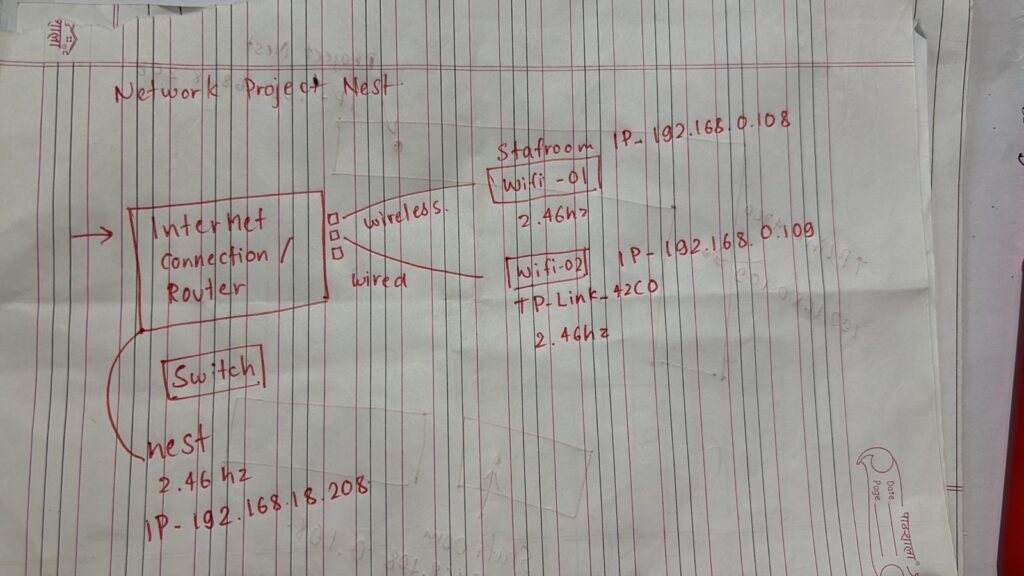 Network Project Nest
Stafroom IP- 192.168.0.108
wifi -01
2.4Ghz
wireless.
Internet
connection /
Router
wifi-02 IP- 192.168.0.109
TP-Link_42C0
2.4Ghz
wired
Switch
nest
2.4G hz
IP- 192.168.18.208
Date
Page